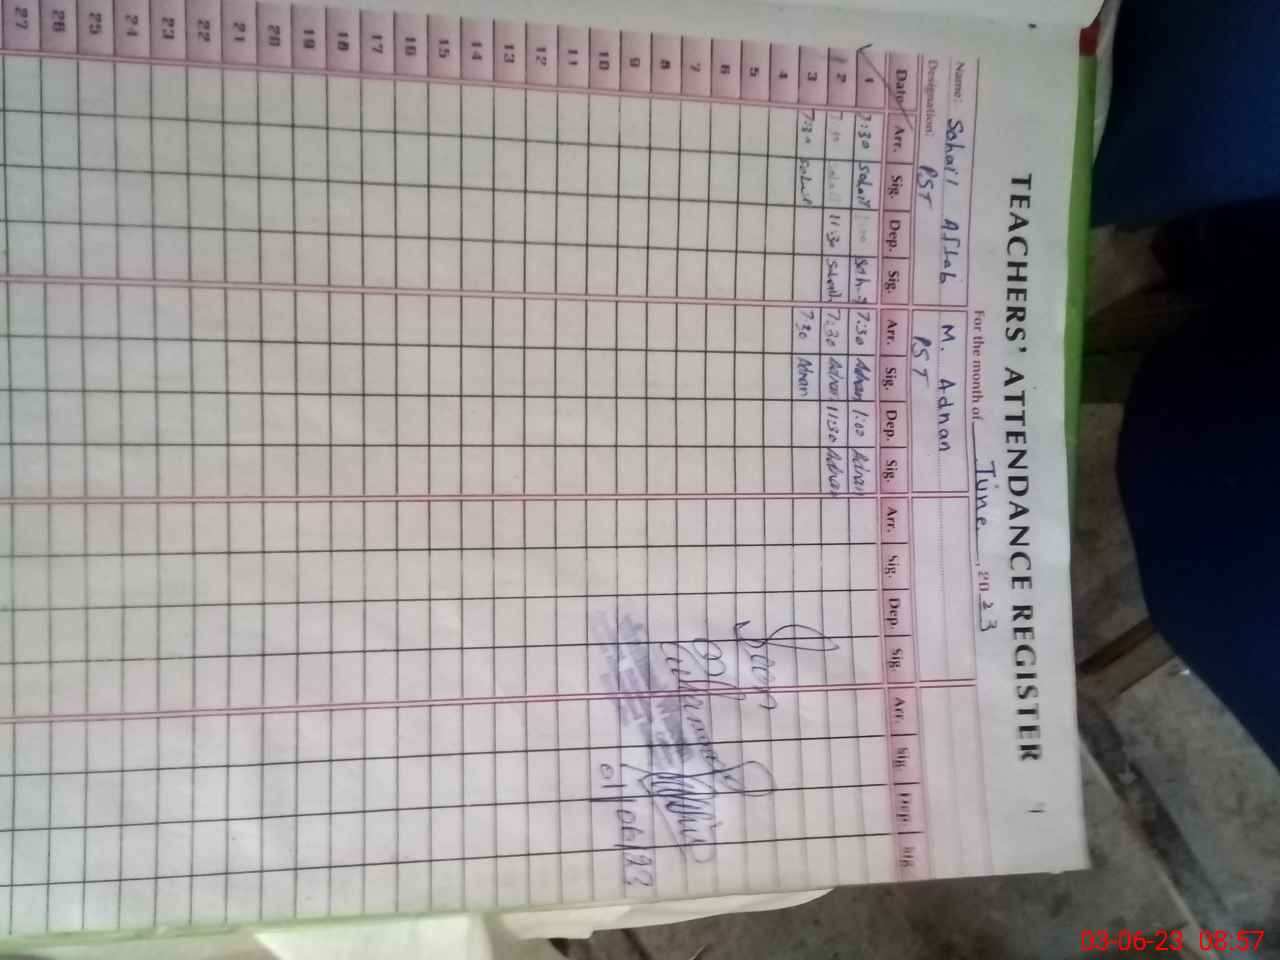 TEACHERS' ATTENDANCE REGISTER
For the month of June, 2023
Name: Sohail Aftab M. Adnan
Designation: PST PST
Date Arr. Sig. Dep. Sig. Arr. Sig. Dep. Sig. Arr. Sig. Dep. Sig. Arr. Sig. Dep. Sig.
1 7:30 Sohail 1:00 7:30 Adnan 1:00 Adnan
2 11:30 Sohail 7:30 Adnan 11:30 Adnan
3 7:30 Sohail 7:30 Adnan
4
5
6
7
8
9
10
11
12
13
14
15
16
17
18
19
20
21
22
23
24
25
26
27
Seen
01/06/23
03-06-23 08:57